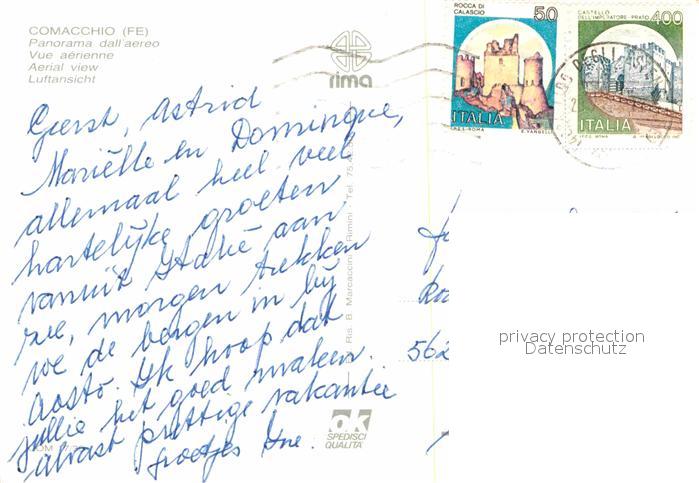 COMACCHIO (FE)
Panorama dall'aereo
Vue aérienne
Aerial view
Luftansicht
rima
ROCCA DI
CALASCIO
50
ITALIA
I.P.Z.S. ROMA
CASTELLO
DELL'IMPERATORE-PRATO
400
ITALIA
I.P.Z.S. ROMA
Gerst, Astrid
Mariëlle en Domingue,
allemaal heel veel
hartelijke groeten
vanuit Italië aan
zee, morgen trekken
we de bergen in bij
Aosta. Ik hoop dat
jullie het goed maken.
alvast prettige vakantie
groetjes
Ris. B. Marcaccini Rimini Tel.
562
privacy protection
Datenschutz
ok
SPEDISCI
QUALITA'